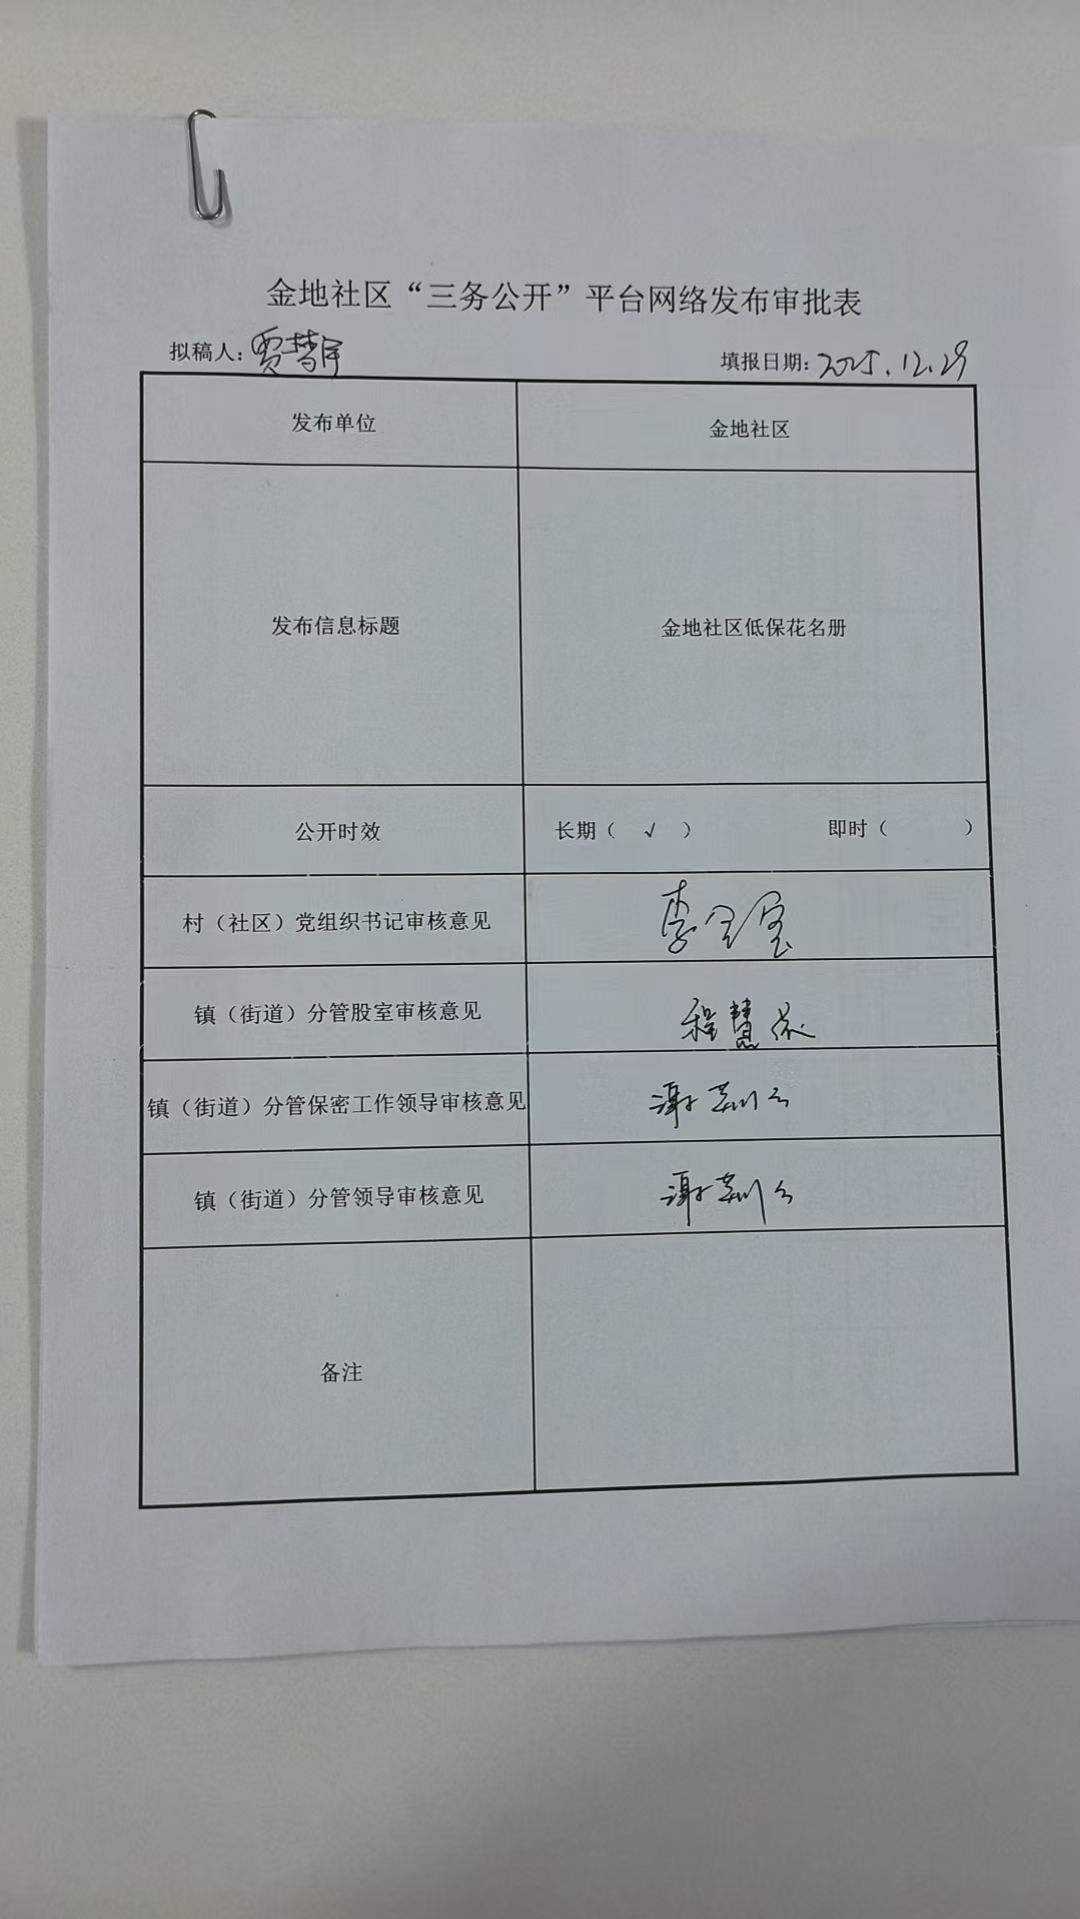 金地社区“三务公开”平台网络发布审批表
拟稿人：贾慧宇 填报日期：2025.12.29
发布单位 金地社区
发布信息标题 金地社区低保花名册
公开时效 长期（ √ ） 即时（ ）
村（社区）党组织书记审核意见 李
镇（街道）分管股室审核意见 程慧
镇（街道）分管保密工作领导审核意见 谢
镇（街道）分管领导审核意见 谢
备注